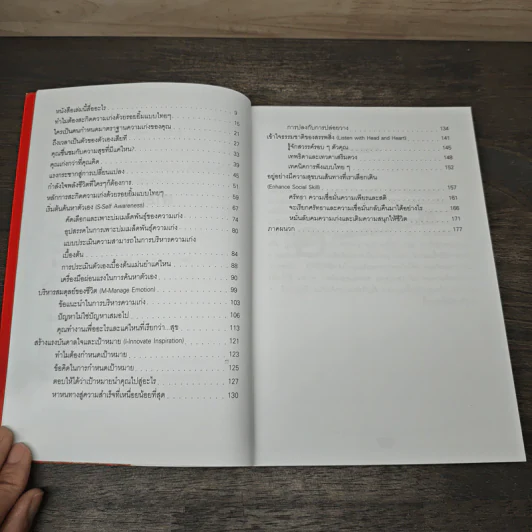 หนังสือเล่มนี้คืออะไร 9
ทำไมต้องสะกิดความเก่งด้วยรอยยิ้มแบบไทยๆ 15
ใครเป็นคนกำหนดมาตรฐานความเก่งของคุณ 21
ถึงเวลาเป็นตัวของตัวเองเสียที 27
คุณชื่นชมกับความสุขที่มีแค่ไหน? 33
คุณเก่งกว่าที่คุณคิด 39
แรงกระชากสู่การเปลี่ยนแปลง 45
กำลังใจพลังชีวิตที่ใครๆก็ต้องการ 51
หลักการสะกิดความเก่งด้วยรอยยิ้มแบบไทยๆ 59
เริ่มต้นค้นหาตัวเอง (S-Self Awareness) 67
คัดเลือกและเพาะบ่มเมล็ดพันธุ์ของความเก่ง 74
อุปสรรคในการเพาะบ่มเมล็ดพันธุ์ความเก่ง 80
แบบประเมินความสามารถในการบริหารความเก่ง
เบื้องต้น 84
การประเมินตัวเองเบื้องต้นแม่นยำแค่ไหน 88
เครื่องมือผ่อนแรงในการค้นหาตัวเอง 90
บริหารสมดุลย์ของชีวิต (M-Manage Emotion) 99
ข้อแนะนำในการบริหารความเก่ง 103
ปัญหาไม่ใช่ปัญหาเสมอไป 106
คุณทำงานเพื่ออะไรและแค่ไหนที่เรียกว่า...สุข 113
สร้างแรงบันดาลใจและเป้าหมาย (I-Innovate Inspiration) 121
ทำไมต้องกำหนดเป้าหมาย 123
ข้อคิดในการกำหนดเป้าหมาย 125
ตอบให้ได้ว่าเป้าหมายนำคุณไปสู่อะไร 127
หาหนทางสู่ความสำเร็จที่เหนื่อยน้อยที่สุด 130
การปลงกับการปล่อยวาง 134
เข้าใจธรรมชาติของสรรพสิ่ง (Listen with Head and Heart) 141
รู้จักสวรรค์รอบ ๆ ตัวคุณ 145
เทพธิดาและเทวดาเดินดวง 148
เทคนิคการฟังแบบไทย ๆ 152
อยู่อย่างมีความสุขบนเส้นทางที่เราเลือกเดิน
(Enhance Social Skill) 157
ศรัทธา ความเชื่อมั่นความเพียรและสติ 161
จะเรียกศรัทธาและความเชื่อมั่นกลับคืนมาได้อย่างไร 166
หมั่นลับคมความเก่งและเติมความสุขให้ชีวิต 171
ภาคผนวก 177